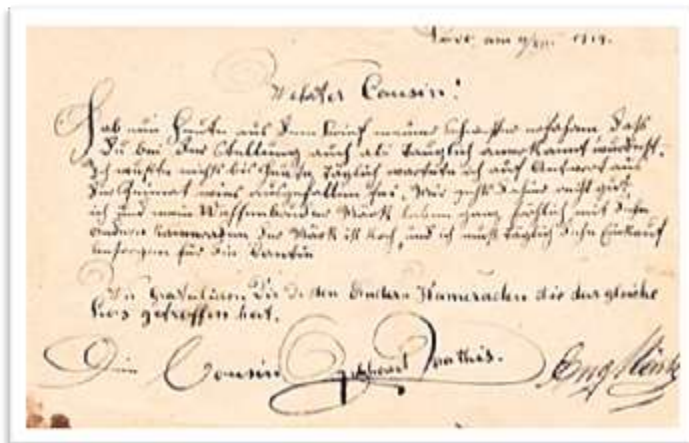 am
Cousin!
Hab nun heute aus dem Brief meiner Schwester erfahren daß
Du bei der Stellung auch als tauglich anerkannt wurdest.
Ich wußte nichts bis heute täglich wartete ich auf Antwort aus
der Heimat wies ausgefallen sei. Mir gehts recht gut,
ich und mein Waffenbruder Märk leben ganz fröhlich mit
andern Kameraden der Märk ist Koch, und ich muß täglich Einkauf
besorgen für die Cantin
Wir Dir den Andern Kameraden die das gleiche
Los getroffen hat.
Dein Cousin Mathis. Eug Märk